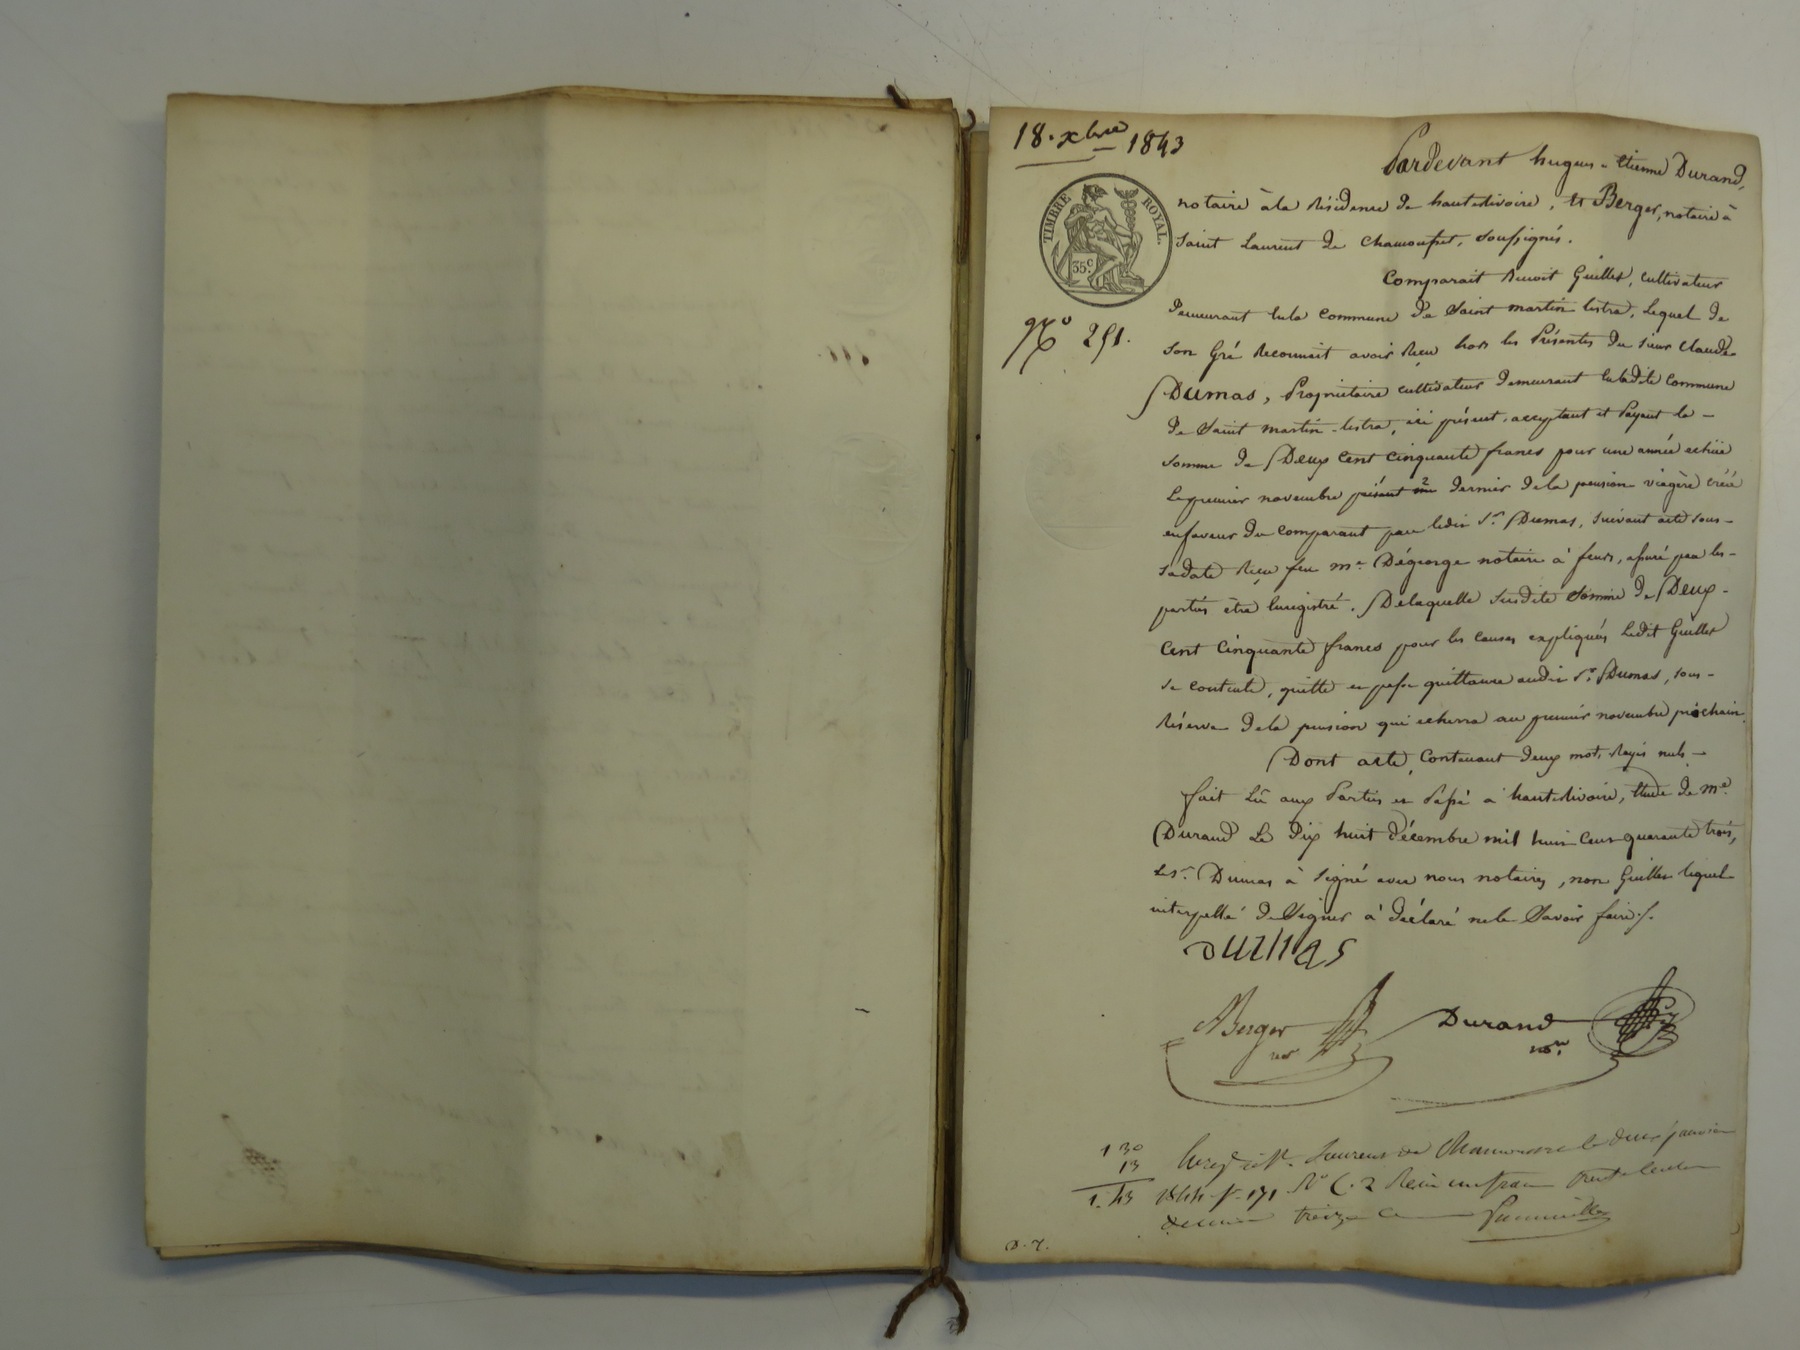 18. xbre 1843
Pardevant hugues-Etienne Durand,
TIMBRE ROYAL.
35.c
notaire à la Résidence de hauterivoire, et Berger, notaire à
Saint Laurent de Chamousset, soussignés.
Comparait Benoit Guillet, cultivateur
No 251.
demeurant enla Commune de Saint martin lestra, Lequel de
son Gré Reconnait avoir Reçu hors les Présentes du sieur Claude
DUmas, Propriétaire cultivateur demeurant enladite Commune
de Saint martin-lestra, ici présent, acceptant et Payant la -
somme de Deux Cent Cinquante francs pour une année échüe
Le premier novembre dernier de la pension viagère créée
enfaveur du comparant par ledit Sr. Dumas, suivant acte sous-
sadate Reçu feu me. Dégeorge notaire à feurs, assuré par les-
parties être Enregistré. Delaquelle susdite Somme de Deux-
Cent Cinquante francs pour les causes expliqués Ledit Guillet
se contente, quitte et passe quittance audit Sr. Dumas, sous-
Réserve de la pension qui echerra au premier novembre prochain.
Dont acte, Contenant deux mots Rayés nuls -
fait Lû aux Parties et Passé à hauterivoire, Etude de me.
Durand Le Dix huit décembre mil huit Cent quarante trois,
Le Sr. Dumas à signé avec nous notaires, non Guillet lequel
interpellé de Signer à déclaré ne le Savoir faire./.
DUMAS
ABerger
not
Durand
nore.
1 30
13
1.43
Enregé à St. Laurent de Chamousset le deux janvier
1844 fo. 171 Ro C. 2 Reçu un franc trente centimes
decime treize c
D. 7.